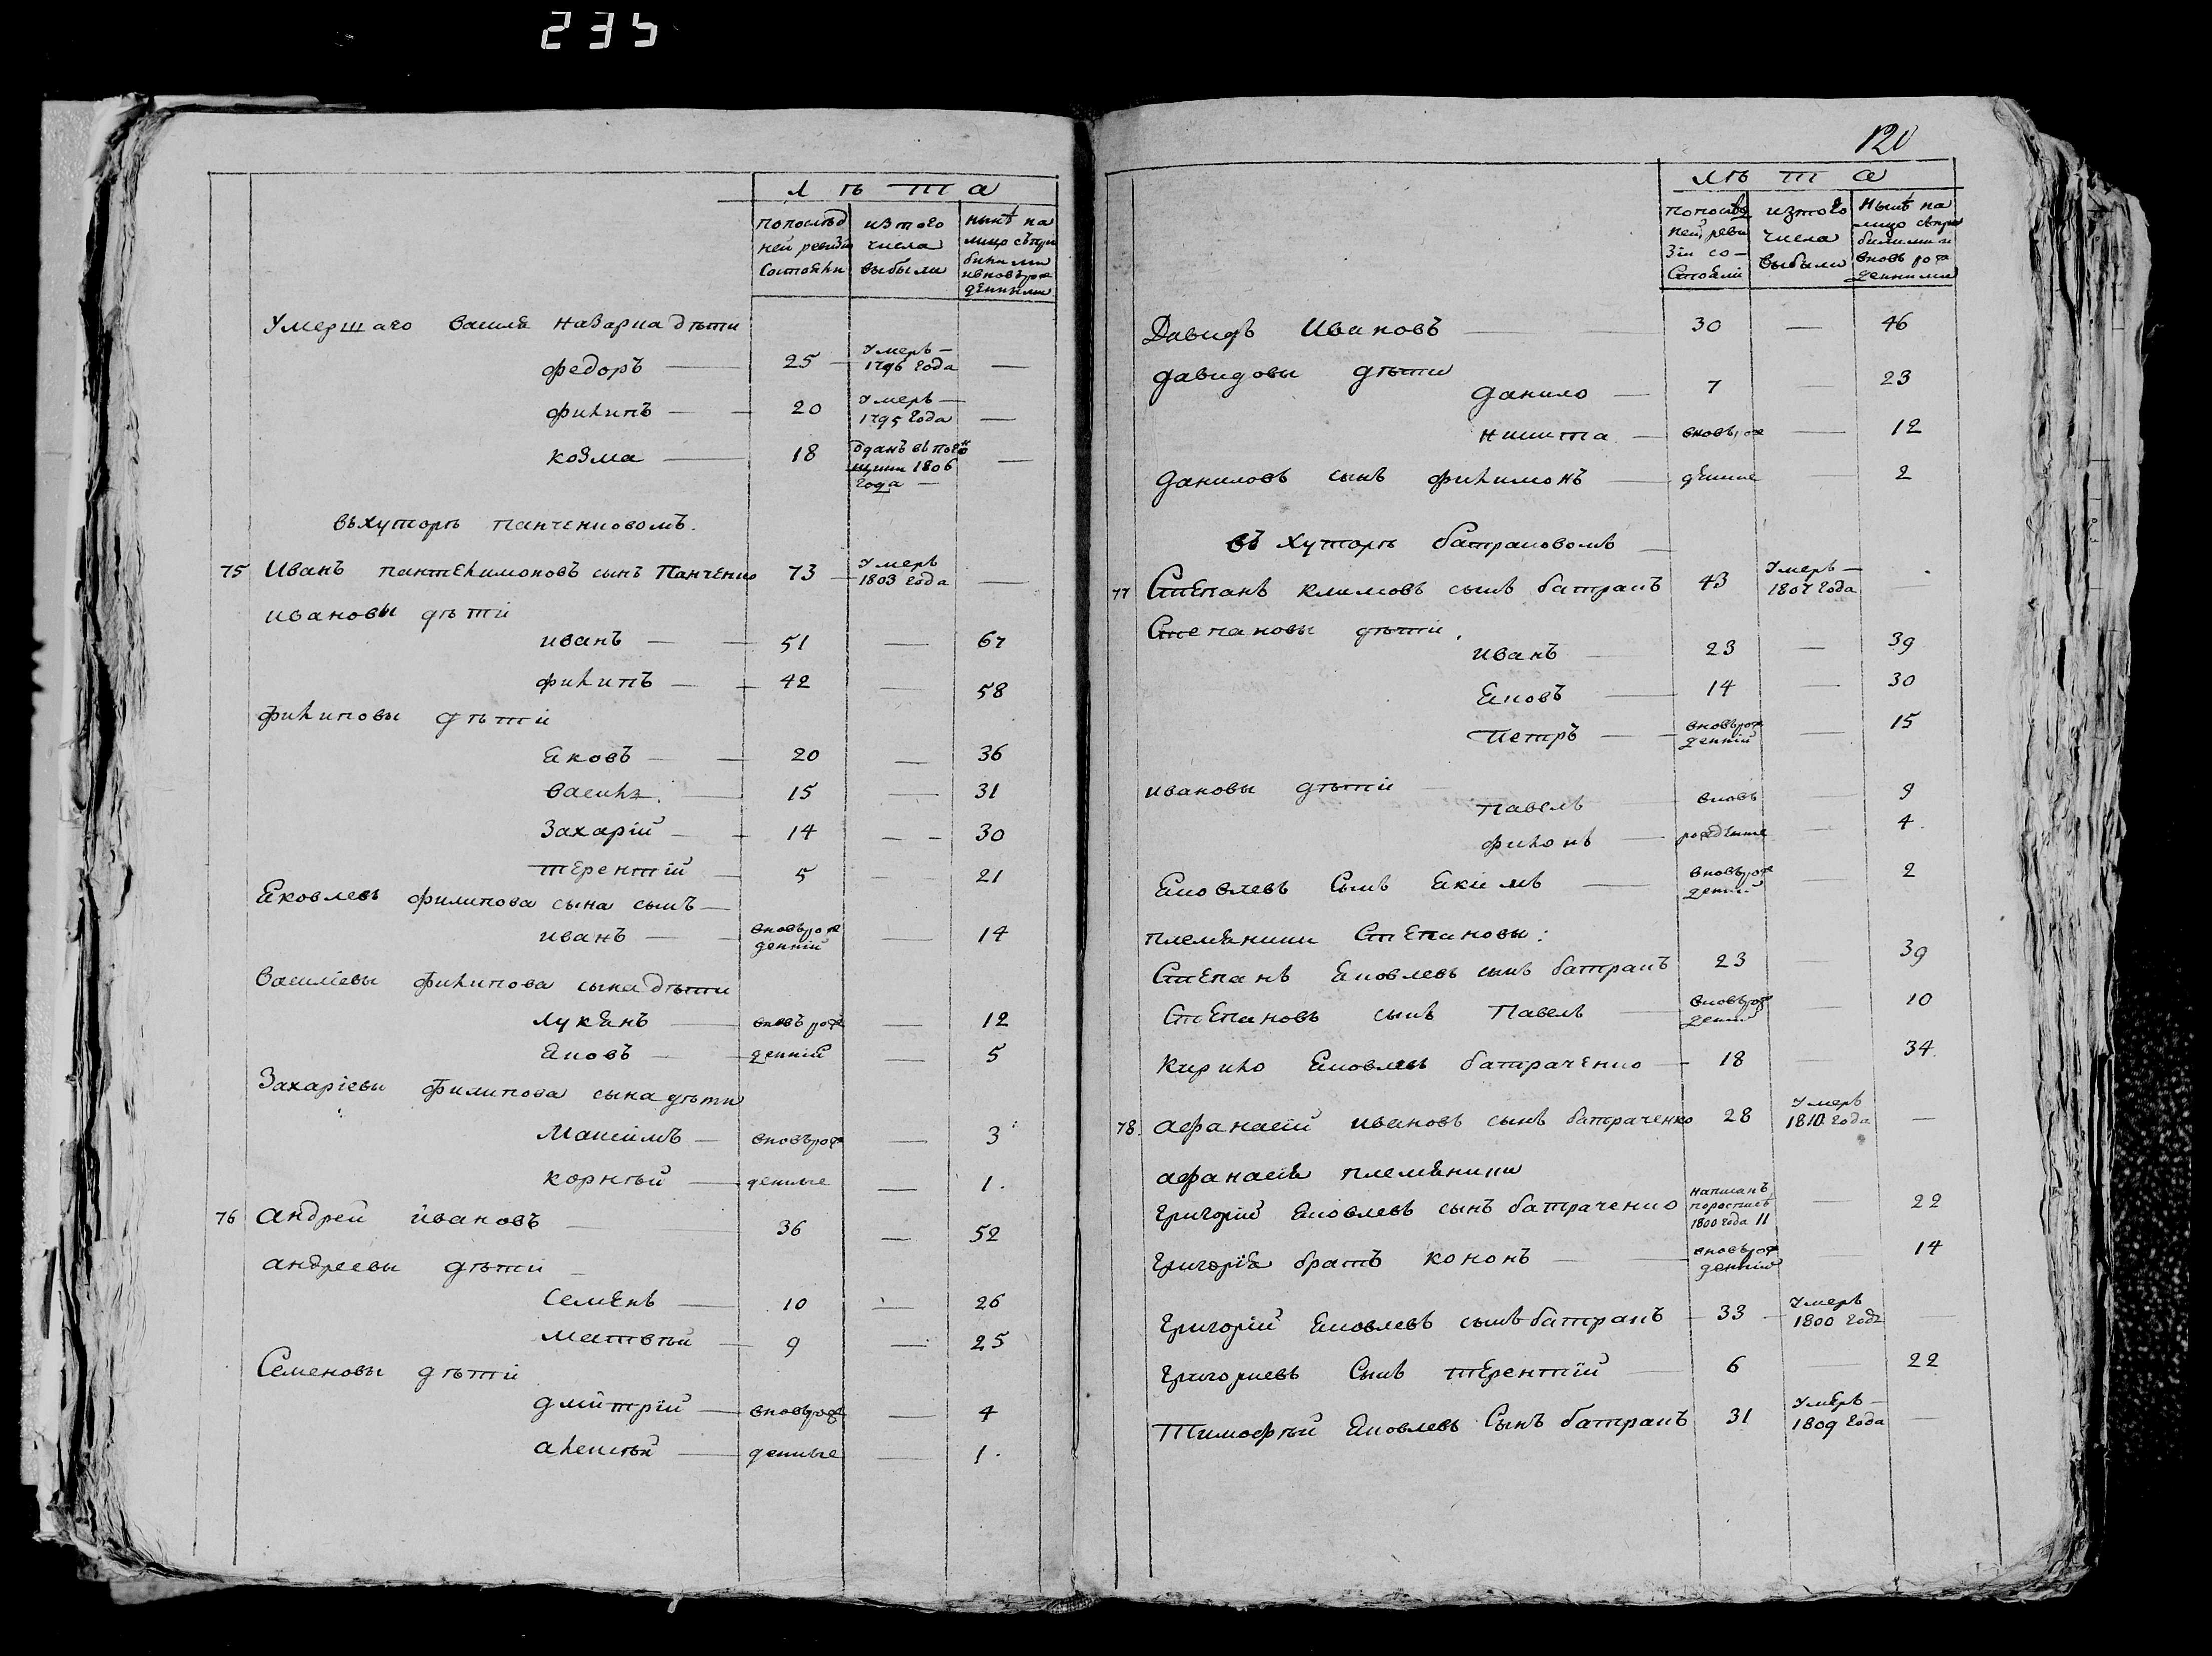 235
Л ѣ т а
попослѣд
ней ревизіи
состояли
изтого
числа
выбыли
нынѣ на
лицо съпри
былыми
ивновьрож
денными
Умершаго Василя Назарца дѣти
Федоръ — 25 — Умеръ — 1796 года —
Филипъ — 20 Умеръ — 1795 года —
Козма — 18 1806 года —
Въхуторѣ Панченковомъ.
75 Иванъ Пантелимоновъ сынъ Панченко 73 — Умеръ 1803 года —
Ивановы дѣти
Иванъ — 51 — 67
Филипъ — 42 — 58
Филиповы дѣти
Яковъ — 20 — 36
Василь — 15 — 31
Захарій — 14 — 30
Терентій — 5 — 21
Яковлевъ Филипова сына сынъ —
Иванъ — вновьрож денній — 14
Василіевы Филипова сына дѣти
Лукянъ — вновь рож — 12
Яковъ — денній — 5
Захаріевы Филипова сына дѣти
Максимъ — вновьрож — 3
Корнѣй — денные — 1.
76 Андрей Ивановъ — 36 — 52
Андреевы дѣти —
Семенъ — 10 — 26
Матвѣй — 9 — 25
Семеновы дѣти
Дмитрій — вновьрож — 4
Алексѣй — денные — 1.
120
Лѣ т а
попослѣд
ней реви
зіи со-
стояли
изтого
числа
выбыли
Нынѣ на
лицо съпри
былыми и
вновь рож
денными
Давидъ Ивановъ — 30 — 46
Давидовы дѣти
Данило — 7 — 23
Никита — вновьрож — 12
Даниловъ сынъ Филимонъ — денные — 2
Въ Хуторѣ Батраковомъ —
77 Степанъ Климовъ сынъ Батракъ 43 Умеръ — 1807 года —
Степановы дѣти.
Иванъ — 23 — 39
Яковъ — 14 — 30
Петръ — вновьрож денній — 15
Ивановы дѣти —
Павелъ — вновь — 9
Филонъ — рожденные — 4.
Яковлевъ Сынъ Якимъ — вновьрож денній — 2
Племянники Степановы:
Степанъ Яковлевъ сынъ Батракъ 23 — 39
Степановъ сынъ Павелъ — вновьрож денній — 10
Кирило Яковлевъ Батраченко — 18 — 34.
78. Афанасій Ивановъ сынъ Батраченко 28 Умеръ 1810 года —
Афанасія племянники
Григорій Яковлевъ сынъ Батраченко написанъ 1800 года 11 — 22
Григорія братъ Кононъ — вновьрож денній — 14
Григорій Яковлевъ сынъ Батракъ — 33 — Умеръ 1800 года
Григориевъ Сынъ Терентій — 6 — 22
Тимофѣй Яковлевъ Сынъ Батракъ 31 Умеръ — 1809 года —